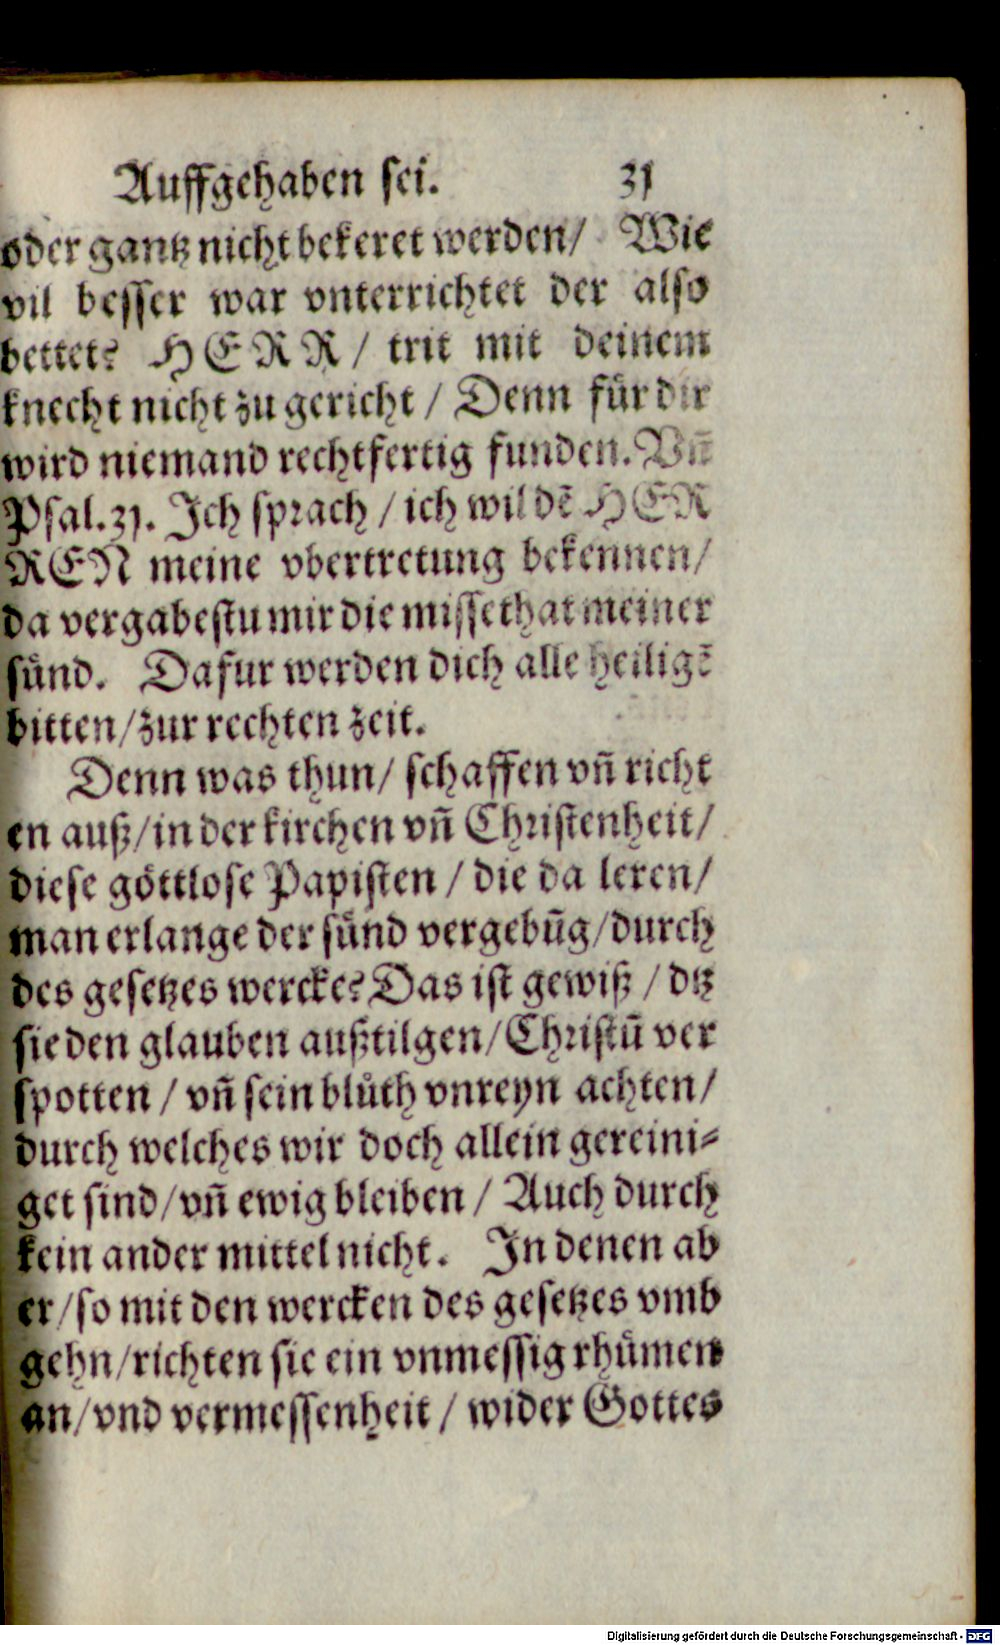 Auffgehaben sei. 31
oder gantz nicht bekeret werden/ Wie
vil besser war vnterrichtet der also
bettet? HERR/ trit mit deinem
knecht nicht zu gericht / Denn für dir
wird niemand rechtfertig funden. Vñ
Psal. 31. Ich sprach / ich wil dē HER
REN meine vbertretung bekennen/
da vergabestu mir die missethat meiner
sünd. Dafur werden dich alle heiligē
bitten/ zur rechten zeit.
Denn was thun/ schaffen vñ richt
en auß/ in der kirchen vñ Christenheit/
diese göttlose Papisten / die da leren/
man erlange der sünd vergebūg/ durch
des gesetzes wercke? Das ist gewiß / dtz
sie den glauben außtilgen/ Christū ver
spotten / vñ sein blůth vnreyn achten/
durch welches wir doch allein gereini⸗
get sind/ vñ ewig bleiben / Auch durch
kein ander mittel nicht. In denen ab
er/ so mit den wercken des gesetzes vmb
gehn/ richten sie ein vnmessig rhümen
an/ vnd vermessenheit / wider Gottes
Digitalisierung gefördert durch die Deutsche Forschungsgemeinschaft - DFG